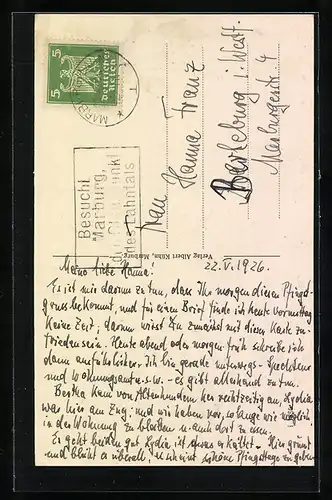 5 5
Deutsches Reich
MARBURG
Besucht
Marburg,
des Lahntals
Frau Hanna Franz
Berleburg i. Westf.
Marburgerstr. 4
Verlag Albert Kühn, Marburg
22.V.1926.
Meine liebe Hanna!
Es ist mir darum zu tun, dass Ihr morgen diesen Pfingst-
gruss bekommt, und für einen Brief finde ich heute Vormittag
keine Zeit; darum müsst Ihr zunächst mit dieser Karte zu-
frieden sein. Heute abend oder morgen früh schreibe ich
dann ausführlicher. Ich bin gerade unterwegs -
und Wohnungsamt u.s.w. - es gibt allerhand zu tun.
Bertha kam von Altenhundem her rechtzeitig an, Lydia
war hier am Zug, und wir haben vor, so lange wie möglich
in der Wohnung zu bleiben u. auch dort zu essen.
Es geht beiden gut, Lydia ist etwas erkältet. Hier grünt
und blüht es überall, es scheint schöne Pfingsttage zu geben